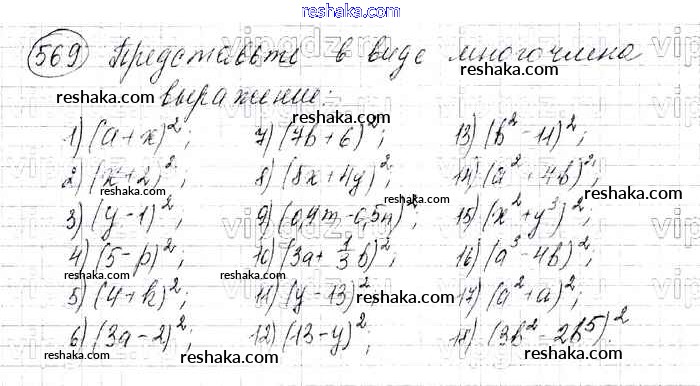 reshaka.com
569 Представьте в виде многочлена
reshaka.com
reshaka.com выражение:
1) (a+x)²; 7) (7b+6)²; 13) (b²-11)²;
reshaka.com
2) (x+2)²; 8) (8x+4y)²; 14) (a²+4b)²;
reshaka.com reshaka.com
3) (y-1)²; 9) (0,4m-0,5n)²; 15) (x²+y³)²;
reshaka.com
4) (5-p)²; 10) (3a+1/3b)²; 16) (a³-4b)²;
reshaka.com reshaka.com
5) (4+k)²; 11) (y-13)²; 17) (a²+a)²;
reshaka.com
6) (3a-2)²; 12) (-13-y)²; 18) (3b²-2b⁵)².
reshaka.com reshaka.com
reshaka.com